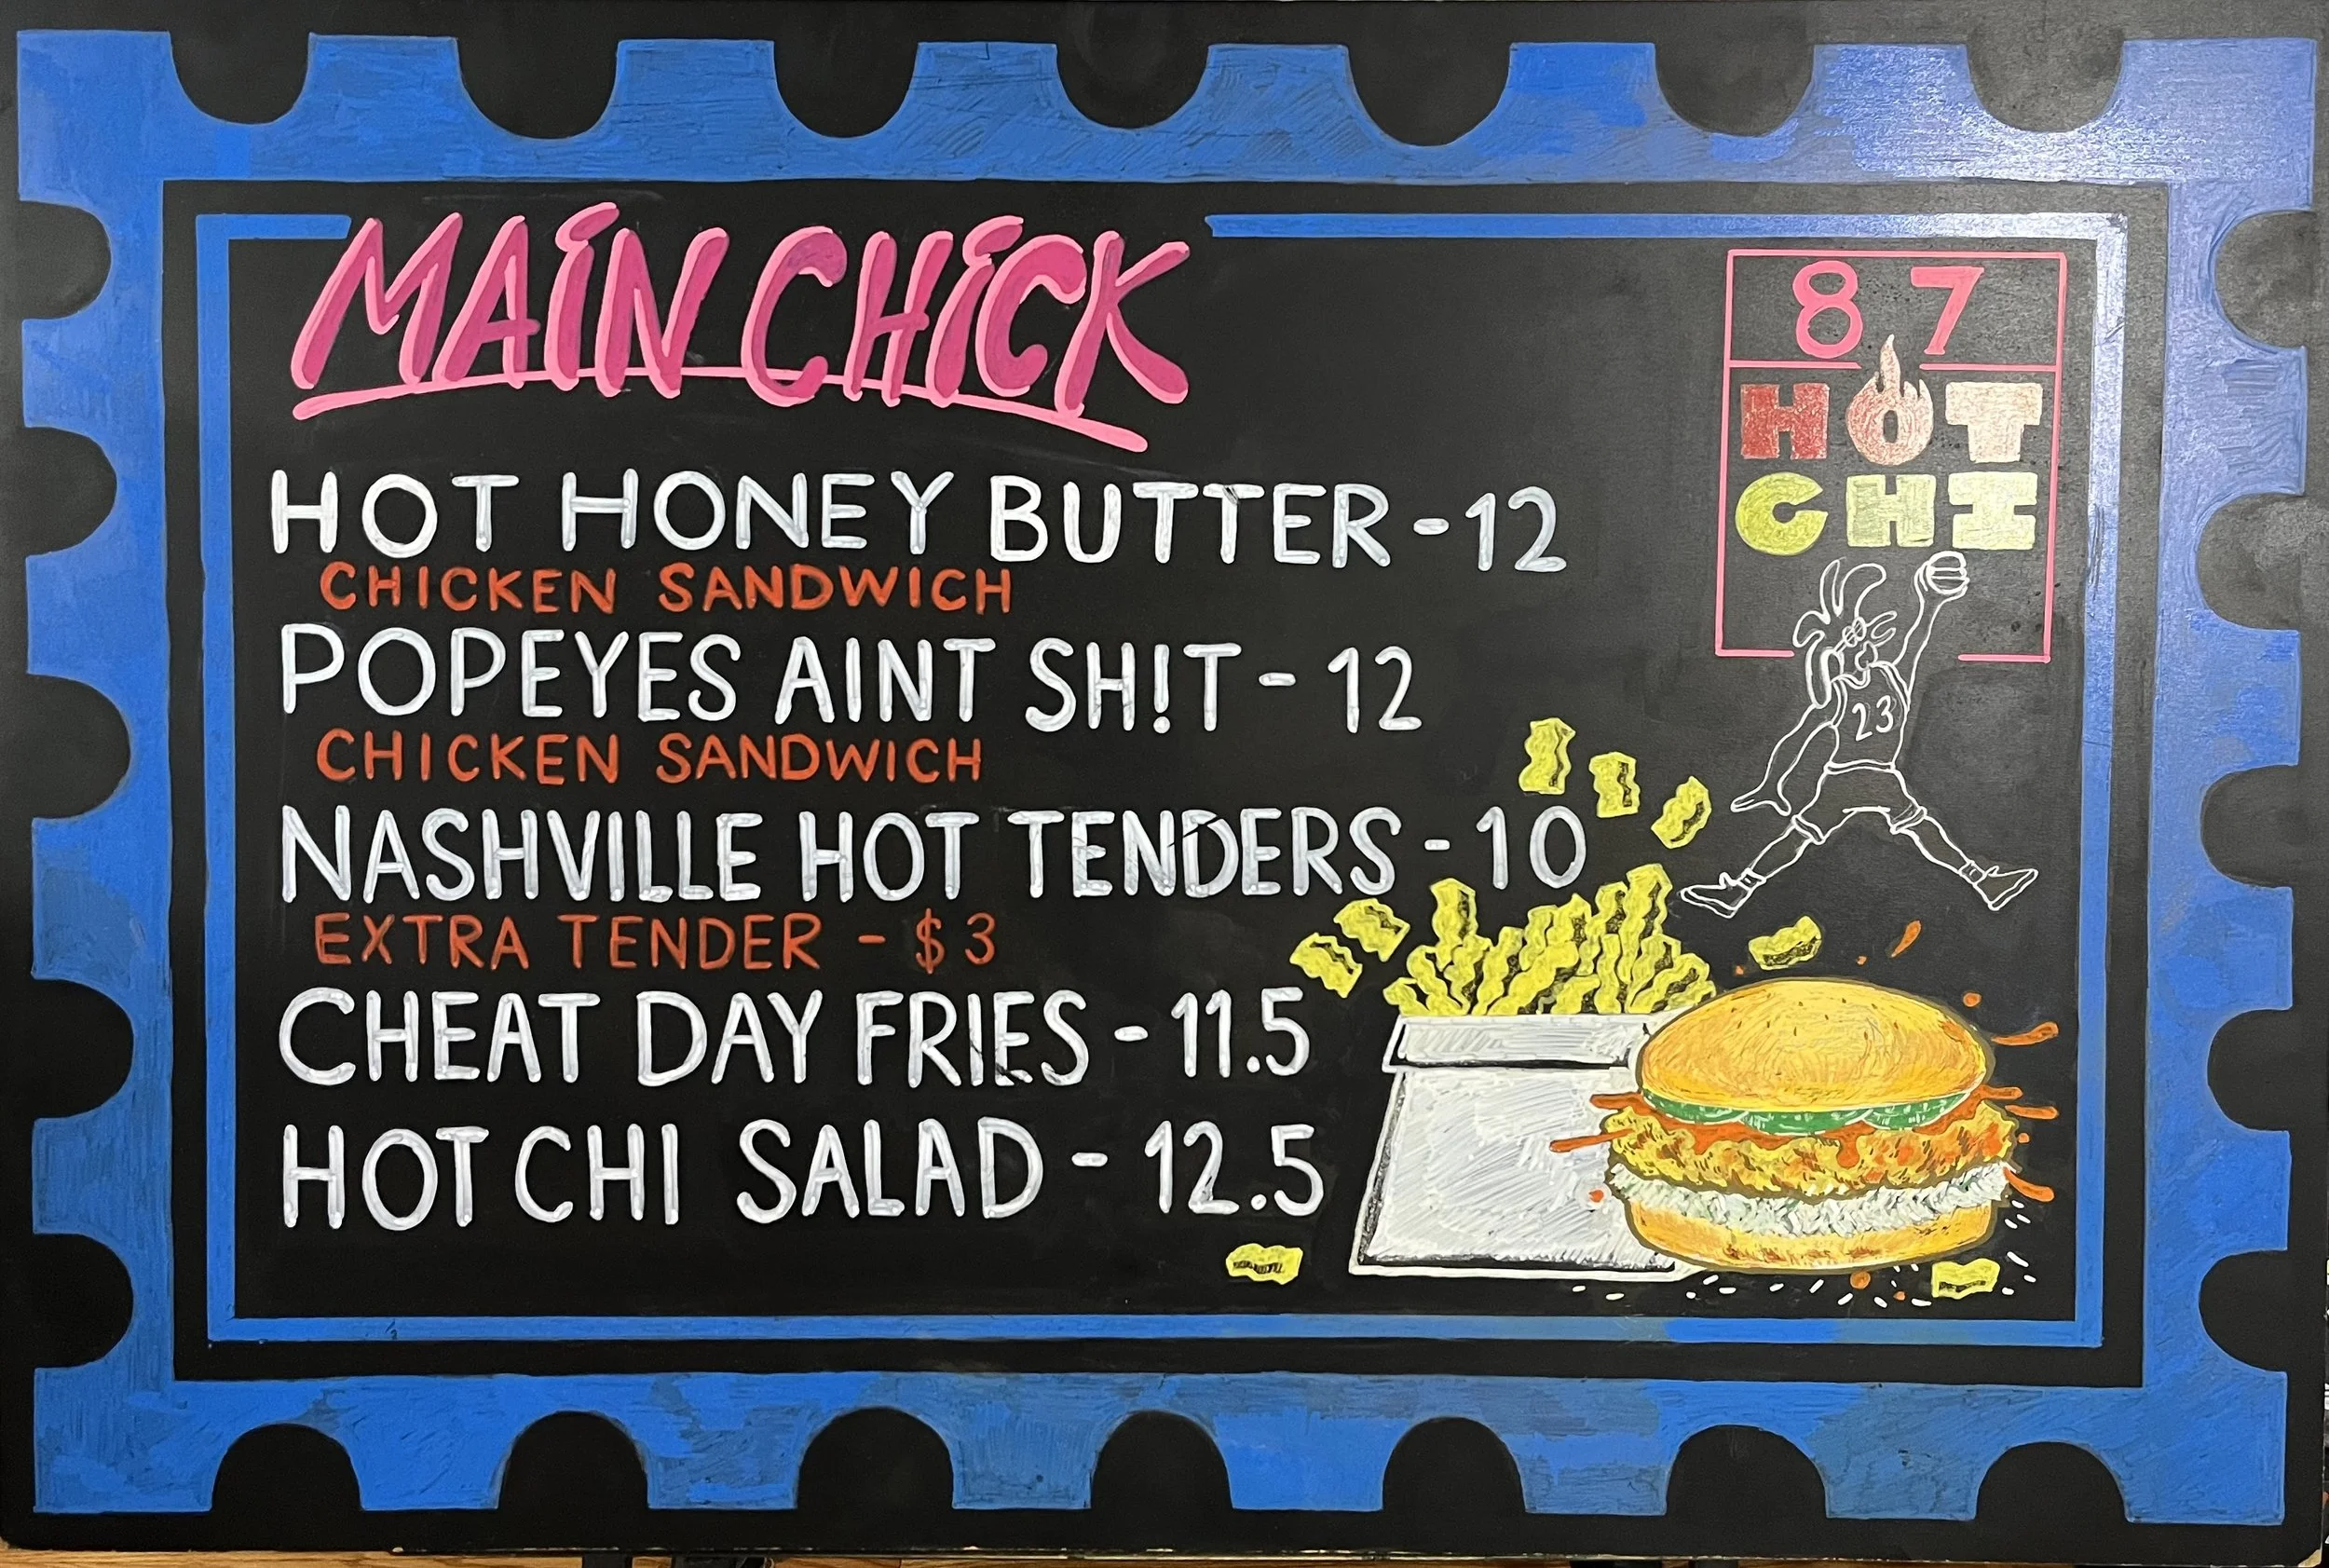 MAIN CHICK
87
HOT
CHI
HOT HONEY BUTTER - 12
CHICKEN SANDWICH
POPEYES AINT SH!T - 12
CHICKEN SANDWICH
23
NASHVILLE HOT TENDERS - 10
EXTRA TENDER - $3
CHEAT DAY FRIES - 11.5
HOT CHI SALAD - 12.5